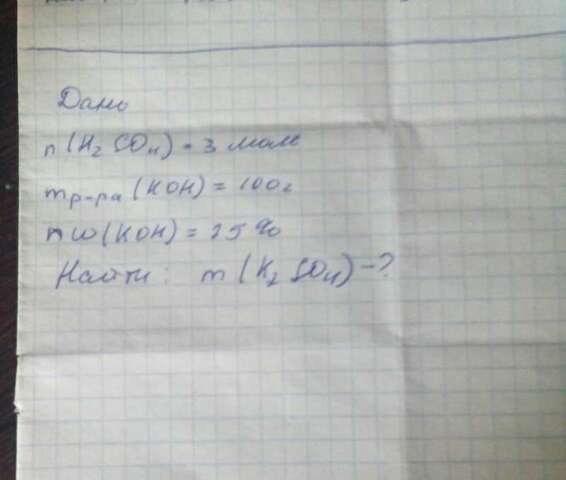 Дано
n(H₂SO₄) = 3 моль
mр-ра(KOH) = 100г
n w(KOH) = 25%
Найти: m(K₂SO₄)-?